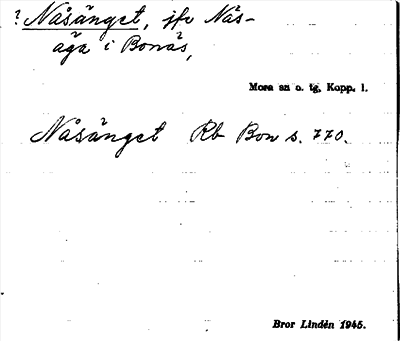 ? Nåsänget, jfr Nås-
äga i Bonäs,
Mora sn o. tg, Kopp. l.
Nåsänget Rb Bon s. 770.
Bror Lindén 1945.